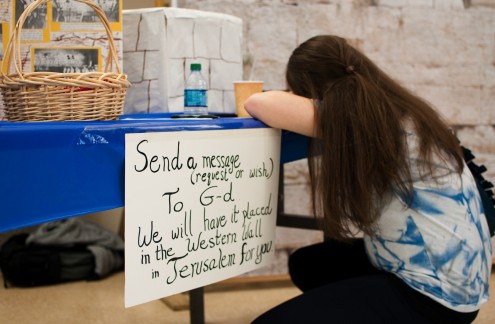 Send a message
(request or wish)
To G-d
We will have it placed
in the Western Wall
in Jerusalem for you